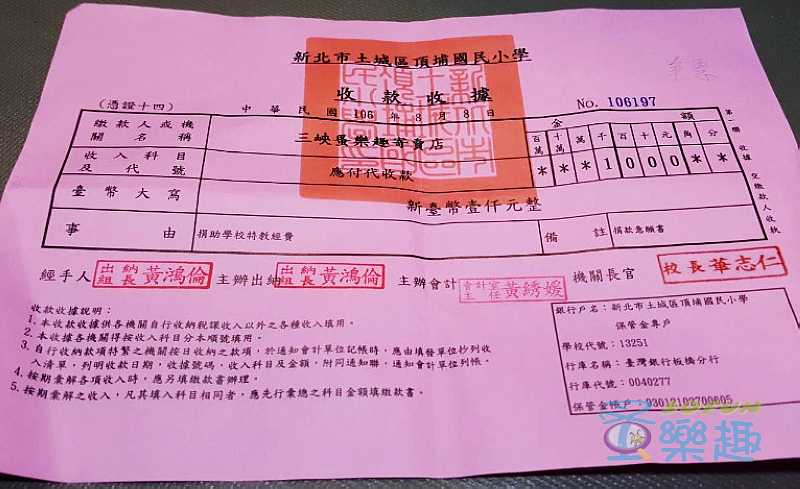 新北市土城區頂埔國民小學
收款收據
(憑證十四)
中華民國106年8月8日
No. 106197
繳款人或機關名稱
三峽蛋樂趣寄賣店
金額
百萬 十萬 萬 千 百 十 元 角 分
收入科目及代號
應付代收款
***1000**
臺幣大寫
新臺幣壹仟元整
事由
捐助學校特教經費
備註
捐款意願書
第一聯 收據 交繳款人收執
經手人 出納組長 黃鴻倫 主辦出納 出納組長 黃鴻倫 主辦會計 會計室主任 黃綉媛 機關長官 校長 華志仁
收款收據說明：
1.本收款收據供各機關自行收納稅課收入以外之各種收入填用。
2.本收據各機關得按收入科目分本順號填用。
3.自行收納款項特繁之機關按日收納之款項，於通知會計單位記帳時，應由填發單位抄列收
入清單，列明收款日期，收據號碼，收入科目及金額，附同通知聯，通知會計單位列帳。
4.按期彙解各項收入時，應另填繳款書辦理。
5.按期彙解之收入，凡其填入科目相同者，應先行彙總之科目金額填繳款書。
銀行戶名：新北市土城區頂埔國民小學
保管金專戶
學校代號：13251
行庫名稱：臺灣銀行板橋分行
行庫代號：0040277
保管金帳戶：93012102700605
SOFUN
蛋樂趣